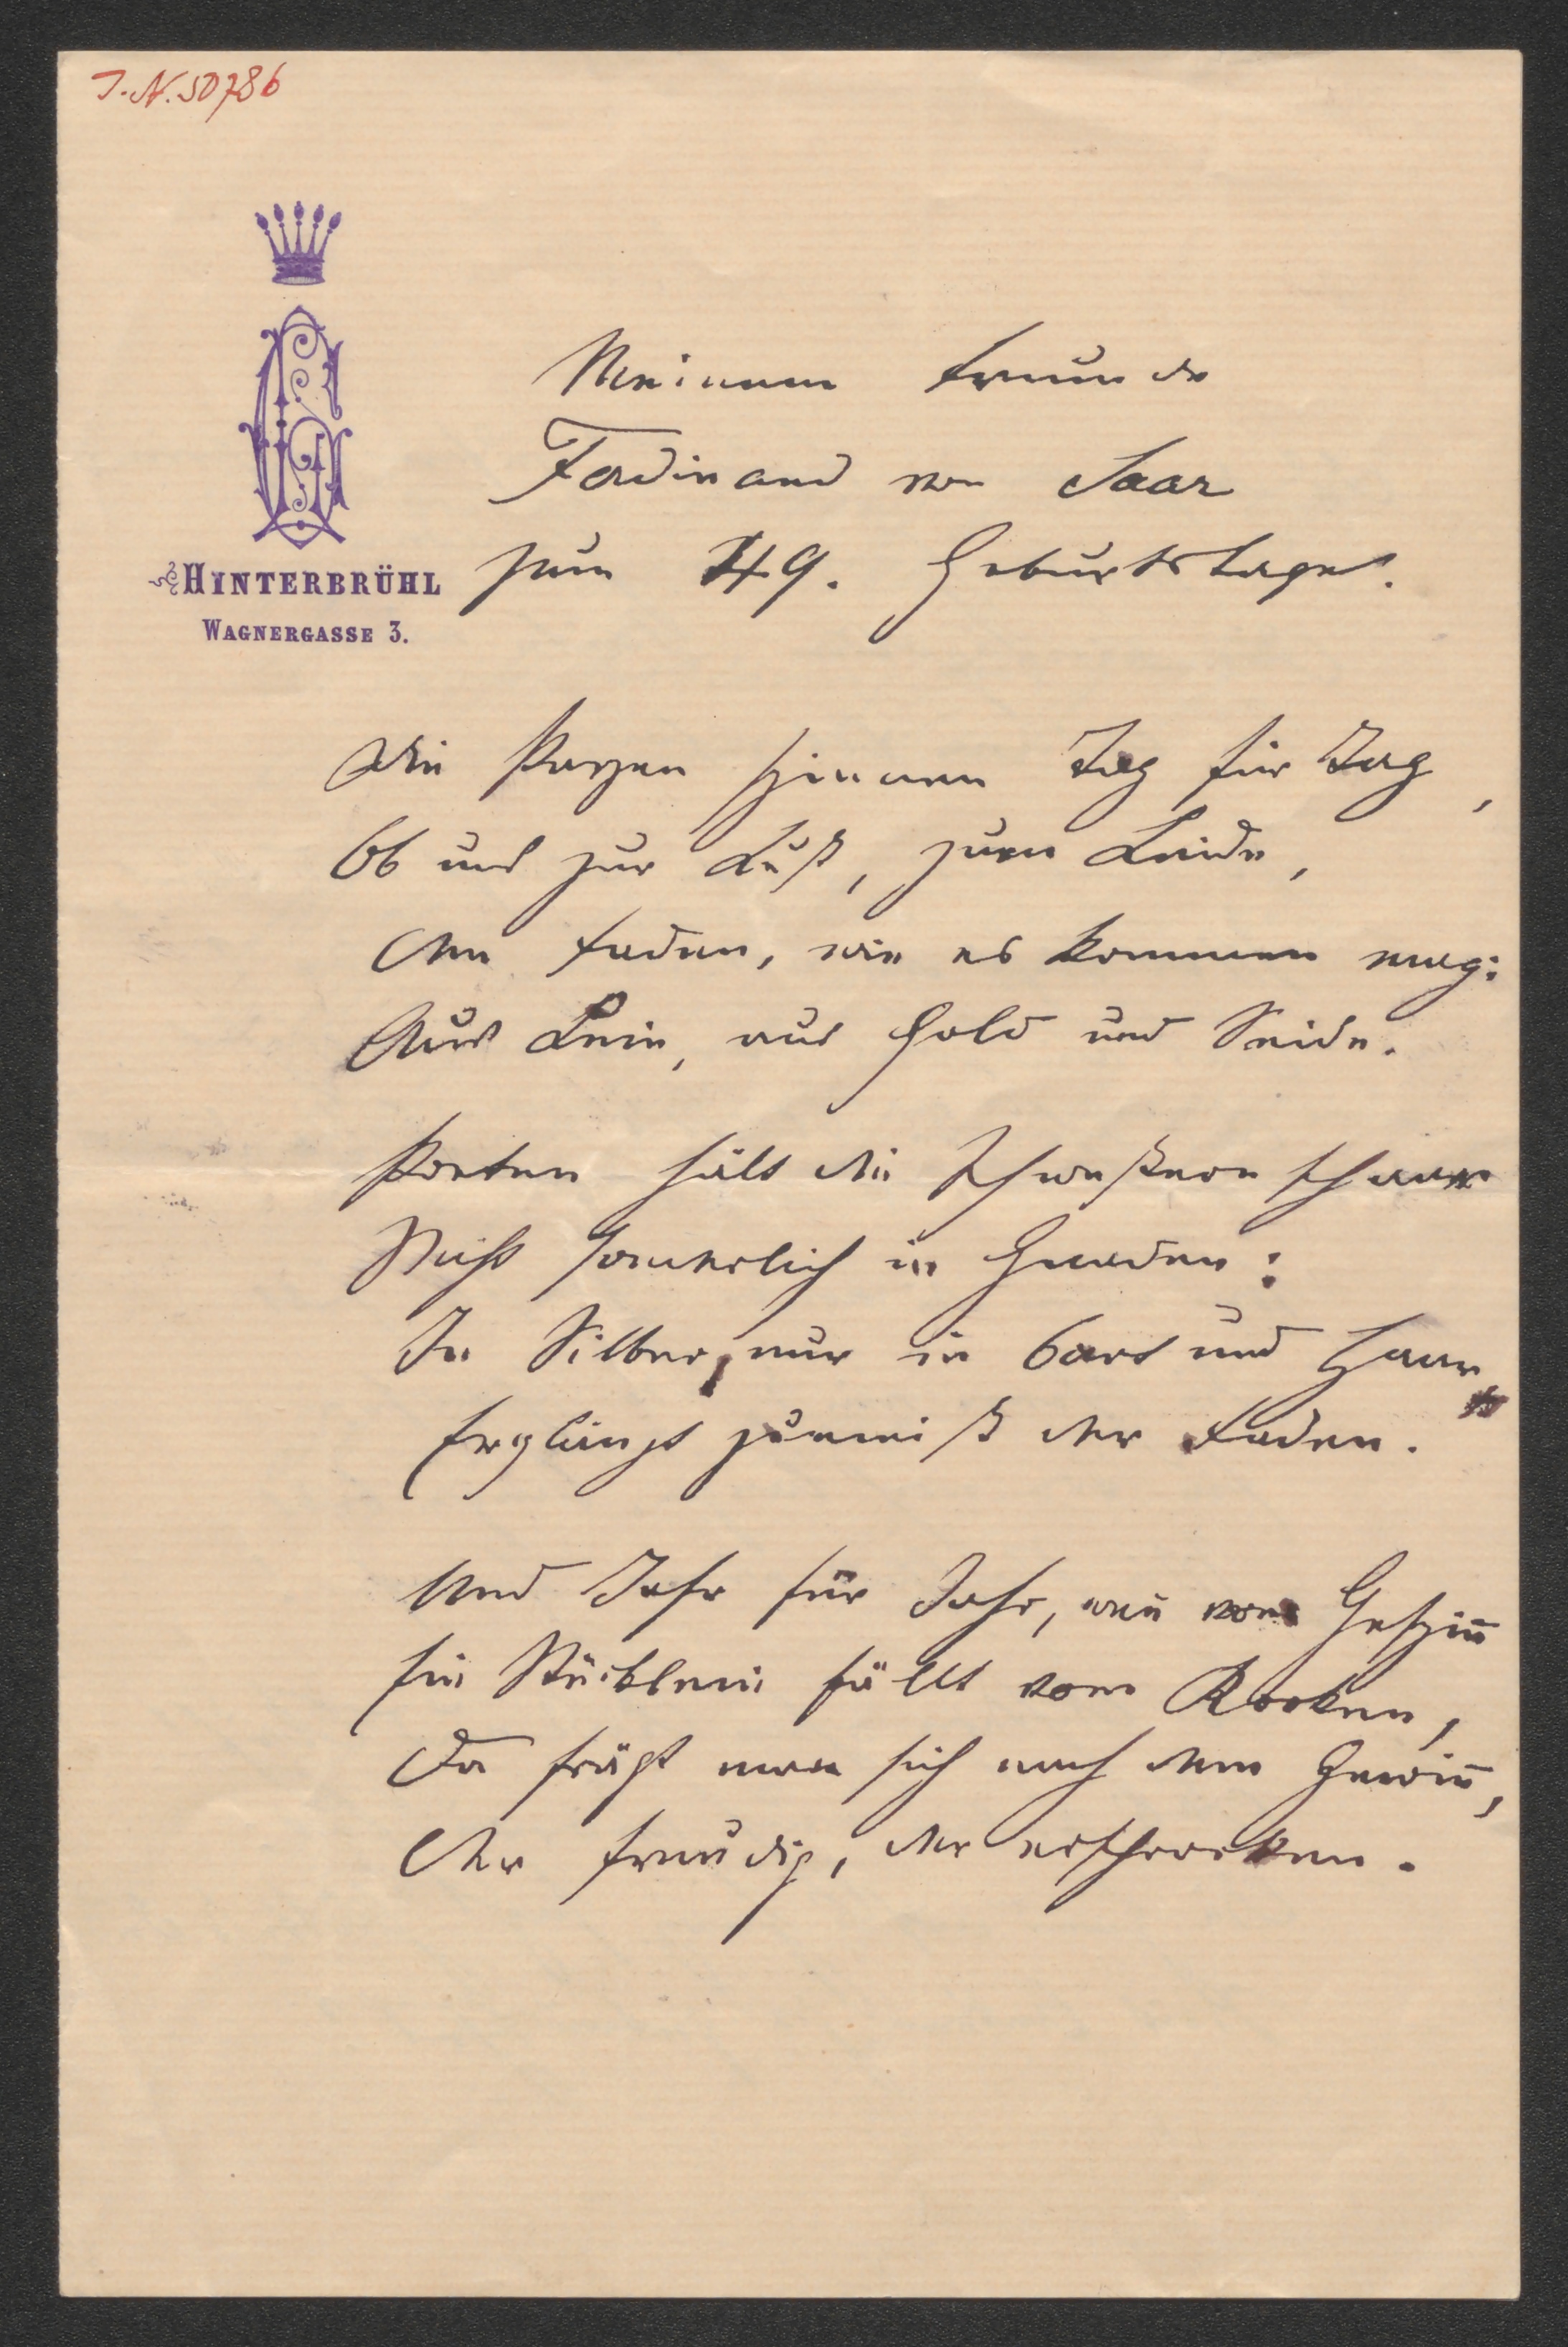 I.N. 50786
HINTERBRÜHL
WAGNERGASSE 3.
Meinem Freunde
Ferdinand von Saar
zum 49. Geburtstage.
Die Parzen spinnen Tag für Tag,
Ob uns zur Lust, zum Leide,
Den Faden, wie es kommen mag:
Aus Lein, aus Gold und Seide.
Poeten hält die Schwesternschaar
Nicht sonderlich in Gnaden:
In Silber, nur in Bart und Haar
Erglänzt zumeist der Faden.
Und Jahr für Jahr, wenn vom Gespinn̄
Ein Stücklein fällt vom Rocken,
Da frägt man sich nach dem Gewin̄,
Der freudig, der erschrocken.